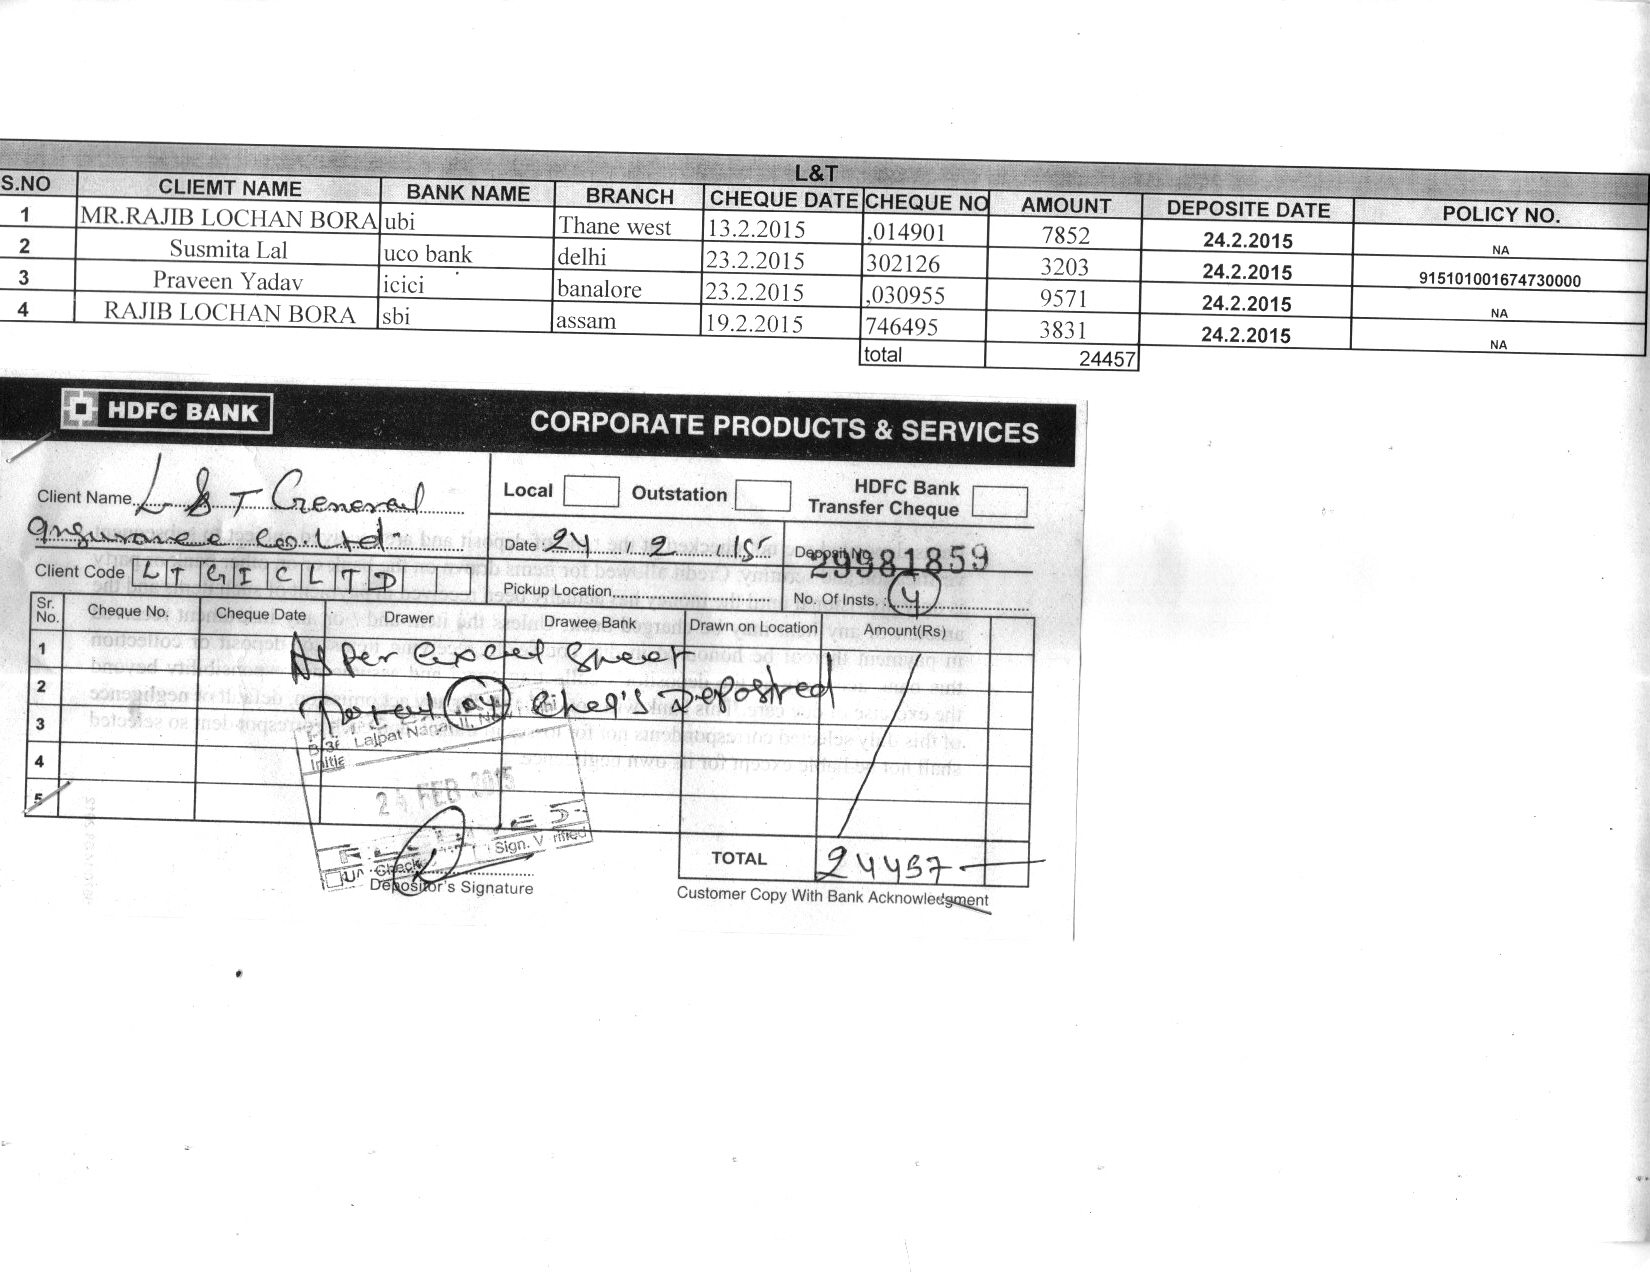 L&T
S.NO CLIEMT NAME BANK NAME BRANCH CHEQUE DATE CHEQUE NO AMOUNT DEPOSITE DATE POLICY NO.
1 MR.RAJIB LOCHAN BORA ubi Thane west 13.2.2015 ,014901 7852 24.2.2015 NA
2 Susmita Lal uco bank delhi 23.2.2015 302126 3203 24.2.2015 915101001674730000
3 Praveen Yadav icici banalore 23.2.2015 ,030955 9571 24.2.2015 NA
4 RAJIB LOCHAN BORA sbi assam 19.2.2015 746495 3831 24.2.2015 NA
total 24457
HDFC BANK CORPORATE PRODUCTS & SERVICES
Client Name L & T General
Insurance Co. Ltd.
Local Outstation HDFC Bank
Transfer Cheque
Date : 24 . 2 . 15 Deposit No. 29981859
Client Code L T G I C L T D
Pickup Location No. Of Insts. : 4
Sr. No. Cheque No. Cheque Date Drawer Drawee Bank Drawn on Location Amount(Rs)
1 As per excel sheet
2 Total (04) Cheq's Deposited
3
4
5
Lajpat Nagar II, New
FEB 2015
Sign. Verified
TOTAL 24457
Depositor's Signature
Customer Copy With Bank Acknowledgment